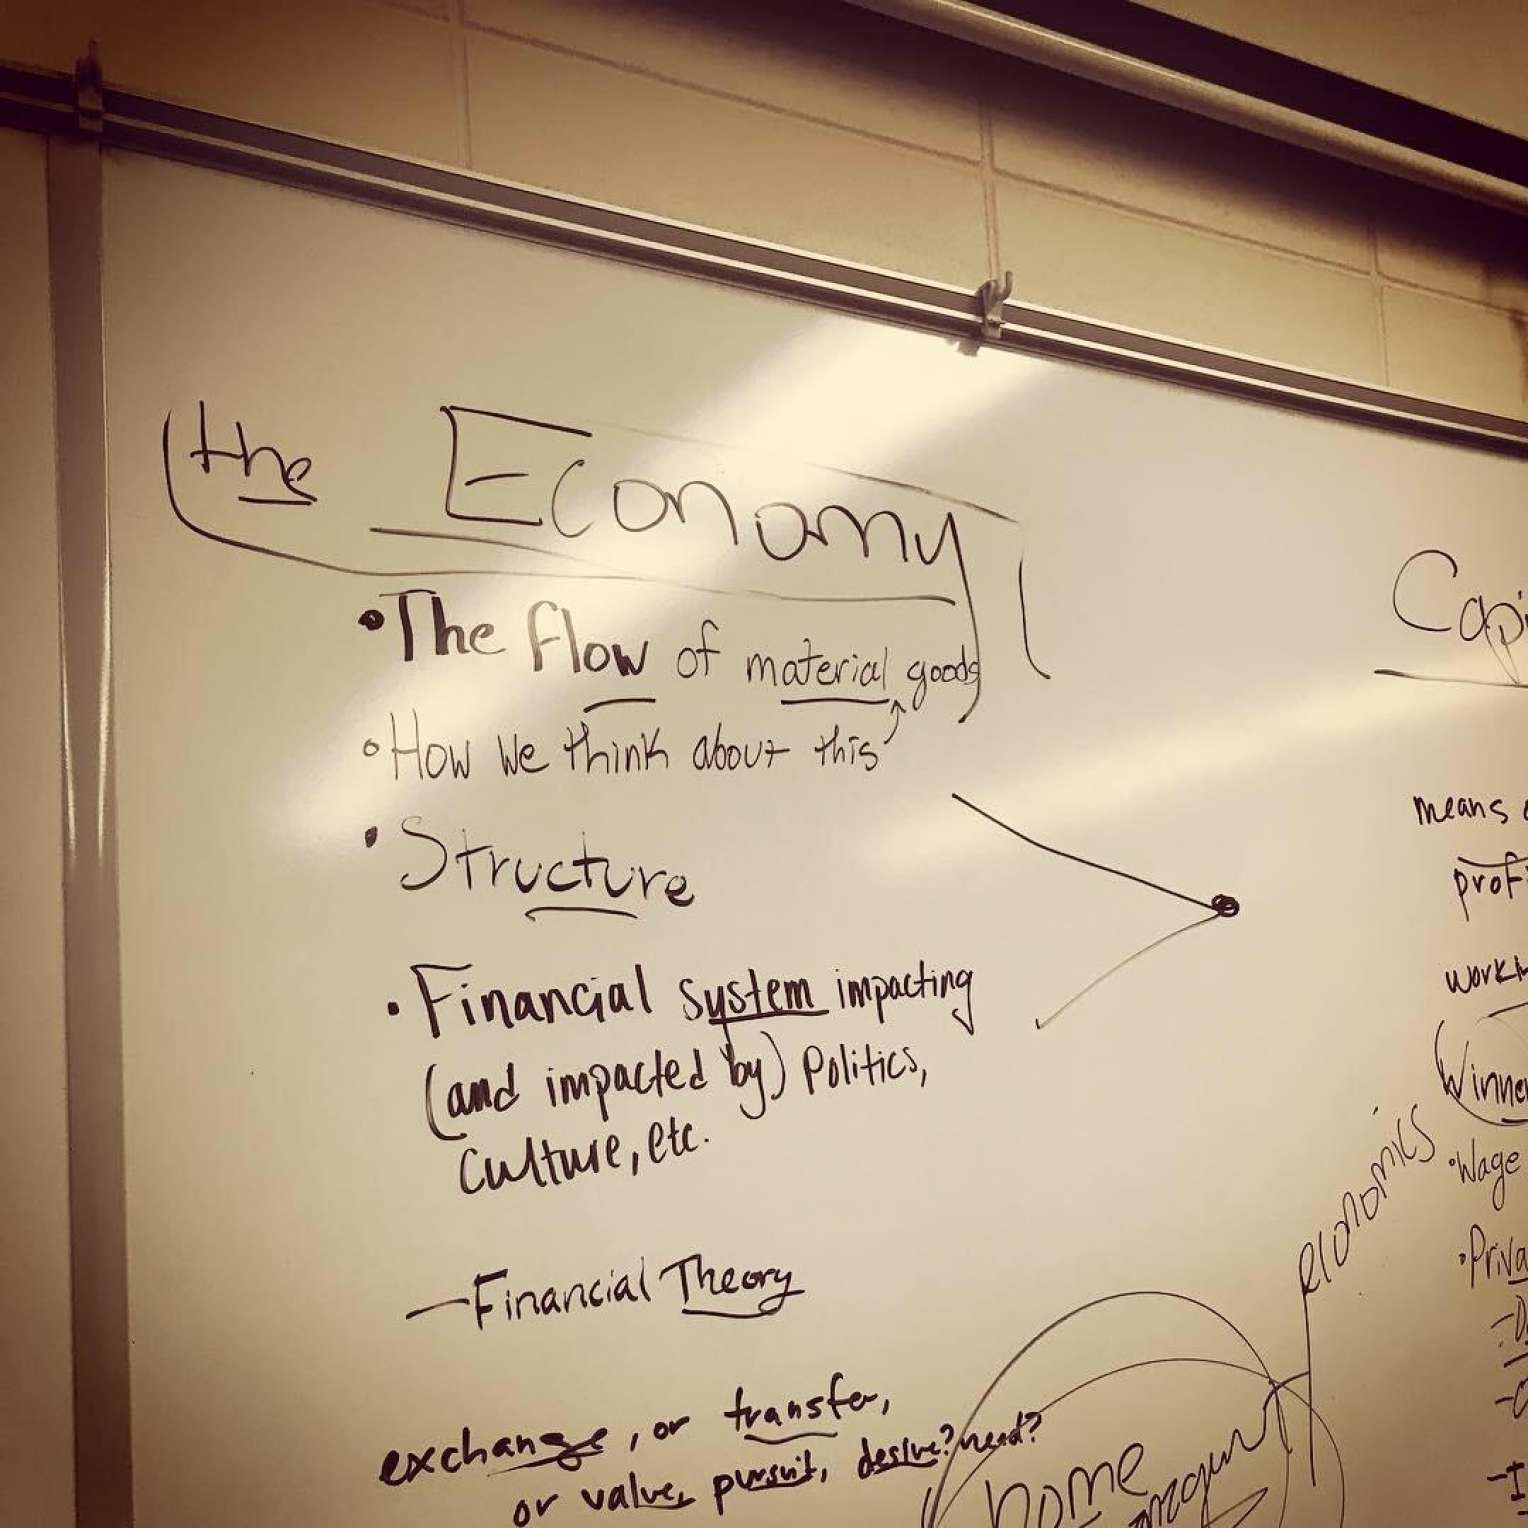 the Economy
• The flow of material goods
• How we think about this
• Structure
• Financial system impacting
(and impacted by) Politics,
Culture, etc.
— Financial Theory
exchange, or transfer,
or value, pursuit, desire? need?
home
economics
means
Wage